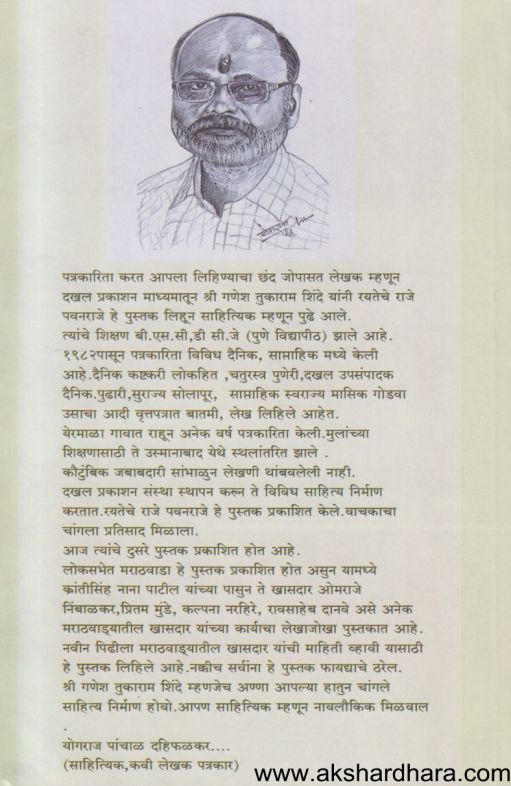 पत्रकारिता करत आपला लिहिण्याचा छंद जोपासत लेखक म्हणून
दखल प्रकाशन माध्यमातून श्री गणेश तुकाराम शिंदे यांनी रयतेचे राजे
पवनराजे हे पुस्तक लिहून साहित्यिक म्हणून पुढे आले.
त्यांचे शिक्षण बी.एस.सी,डी सी.जे (पुणे विद्यापीठ) झाले आहे.
१९८२पासून पत्रकारिता विविध दैनिक, साप्ताहिक मध्ये केली
आहे.दैनिक कष्टकरी लोकहित ,चतुरस्त्र पुणेरी,दखल उपसंपादक
दैनिक.पुढारी,सुराज्य सोलापूर, साप्ताहिक स्वराज्य मासिक गोडवा
उसाचा आदी वृत्तपत्रात बातमी, लेख लिहिले आहेत.
येरमाळा गावात राहून अनेक वर्ष पत्रकारिता केली.मुलांच्या
शिक्षणासाठी ते उस्मानाबाद येथे स्थलांतरित झाले .
कौटुंबिक जबाबदारी सांभाळुन लेखणी थांबवलेली नाही.
दखल प्रकाशन संस्था स्थापन करून ते विविध साहित्य निर्माण
करतात.रयतेचे राजे पवनराजे हे पुस्तक प्रकाशित केले.वाचकाचा
चांगला प्रतिसाद मिळाला.
आज त्यांचे दुसरे पुस्तक प्रकाशित होत आहे.
लोकसभेत मराठवाडा हे पुस्तक प्रकाशित होत असुन यामध्ये
क्रांतीसिंह नाना पाटील यांच्या पासुन ते खासदार ओमराजे
निंबाळकर,प्रितम मुंडे, कल्पना नरहिरे, रावसाहेब दानवे असे अनेक
मराठवाड्यातील खासदार यांच्या कार्याचा लेखाजोखा पुस्तकात आहे.
नवीन पिढीला मराठवाड्यातील खासदार यांची माहिती व्हावी यासाठी
हे पुस्तक लिहिले आहे.नक्कीच सर्वांना हे पुस्तक फायद्याचे ठरेल.
श्री गणेश तुकाराम शिंदे म्हणजेच अण्णा आपल्या हातुन चांगले
साहित्य निर्माण होवो.आपण साहित्यिक म्हणून नावलौकिक मिळवाल
.
योगराज पांचाळ दहिफळकर....
(साहित्यिक,कवी लेखक पत्रकार)
www.akshardhara.com